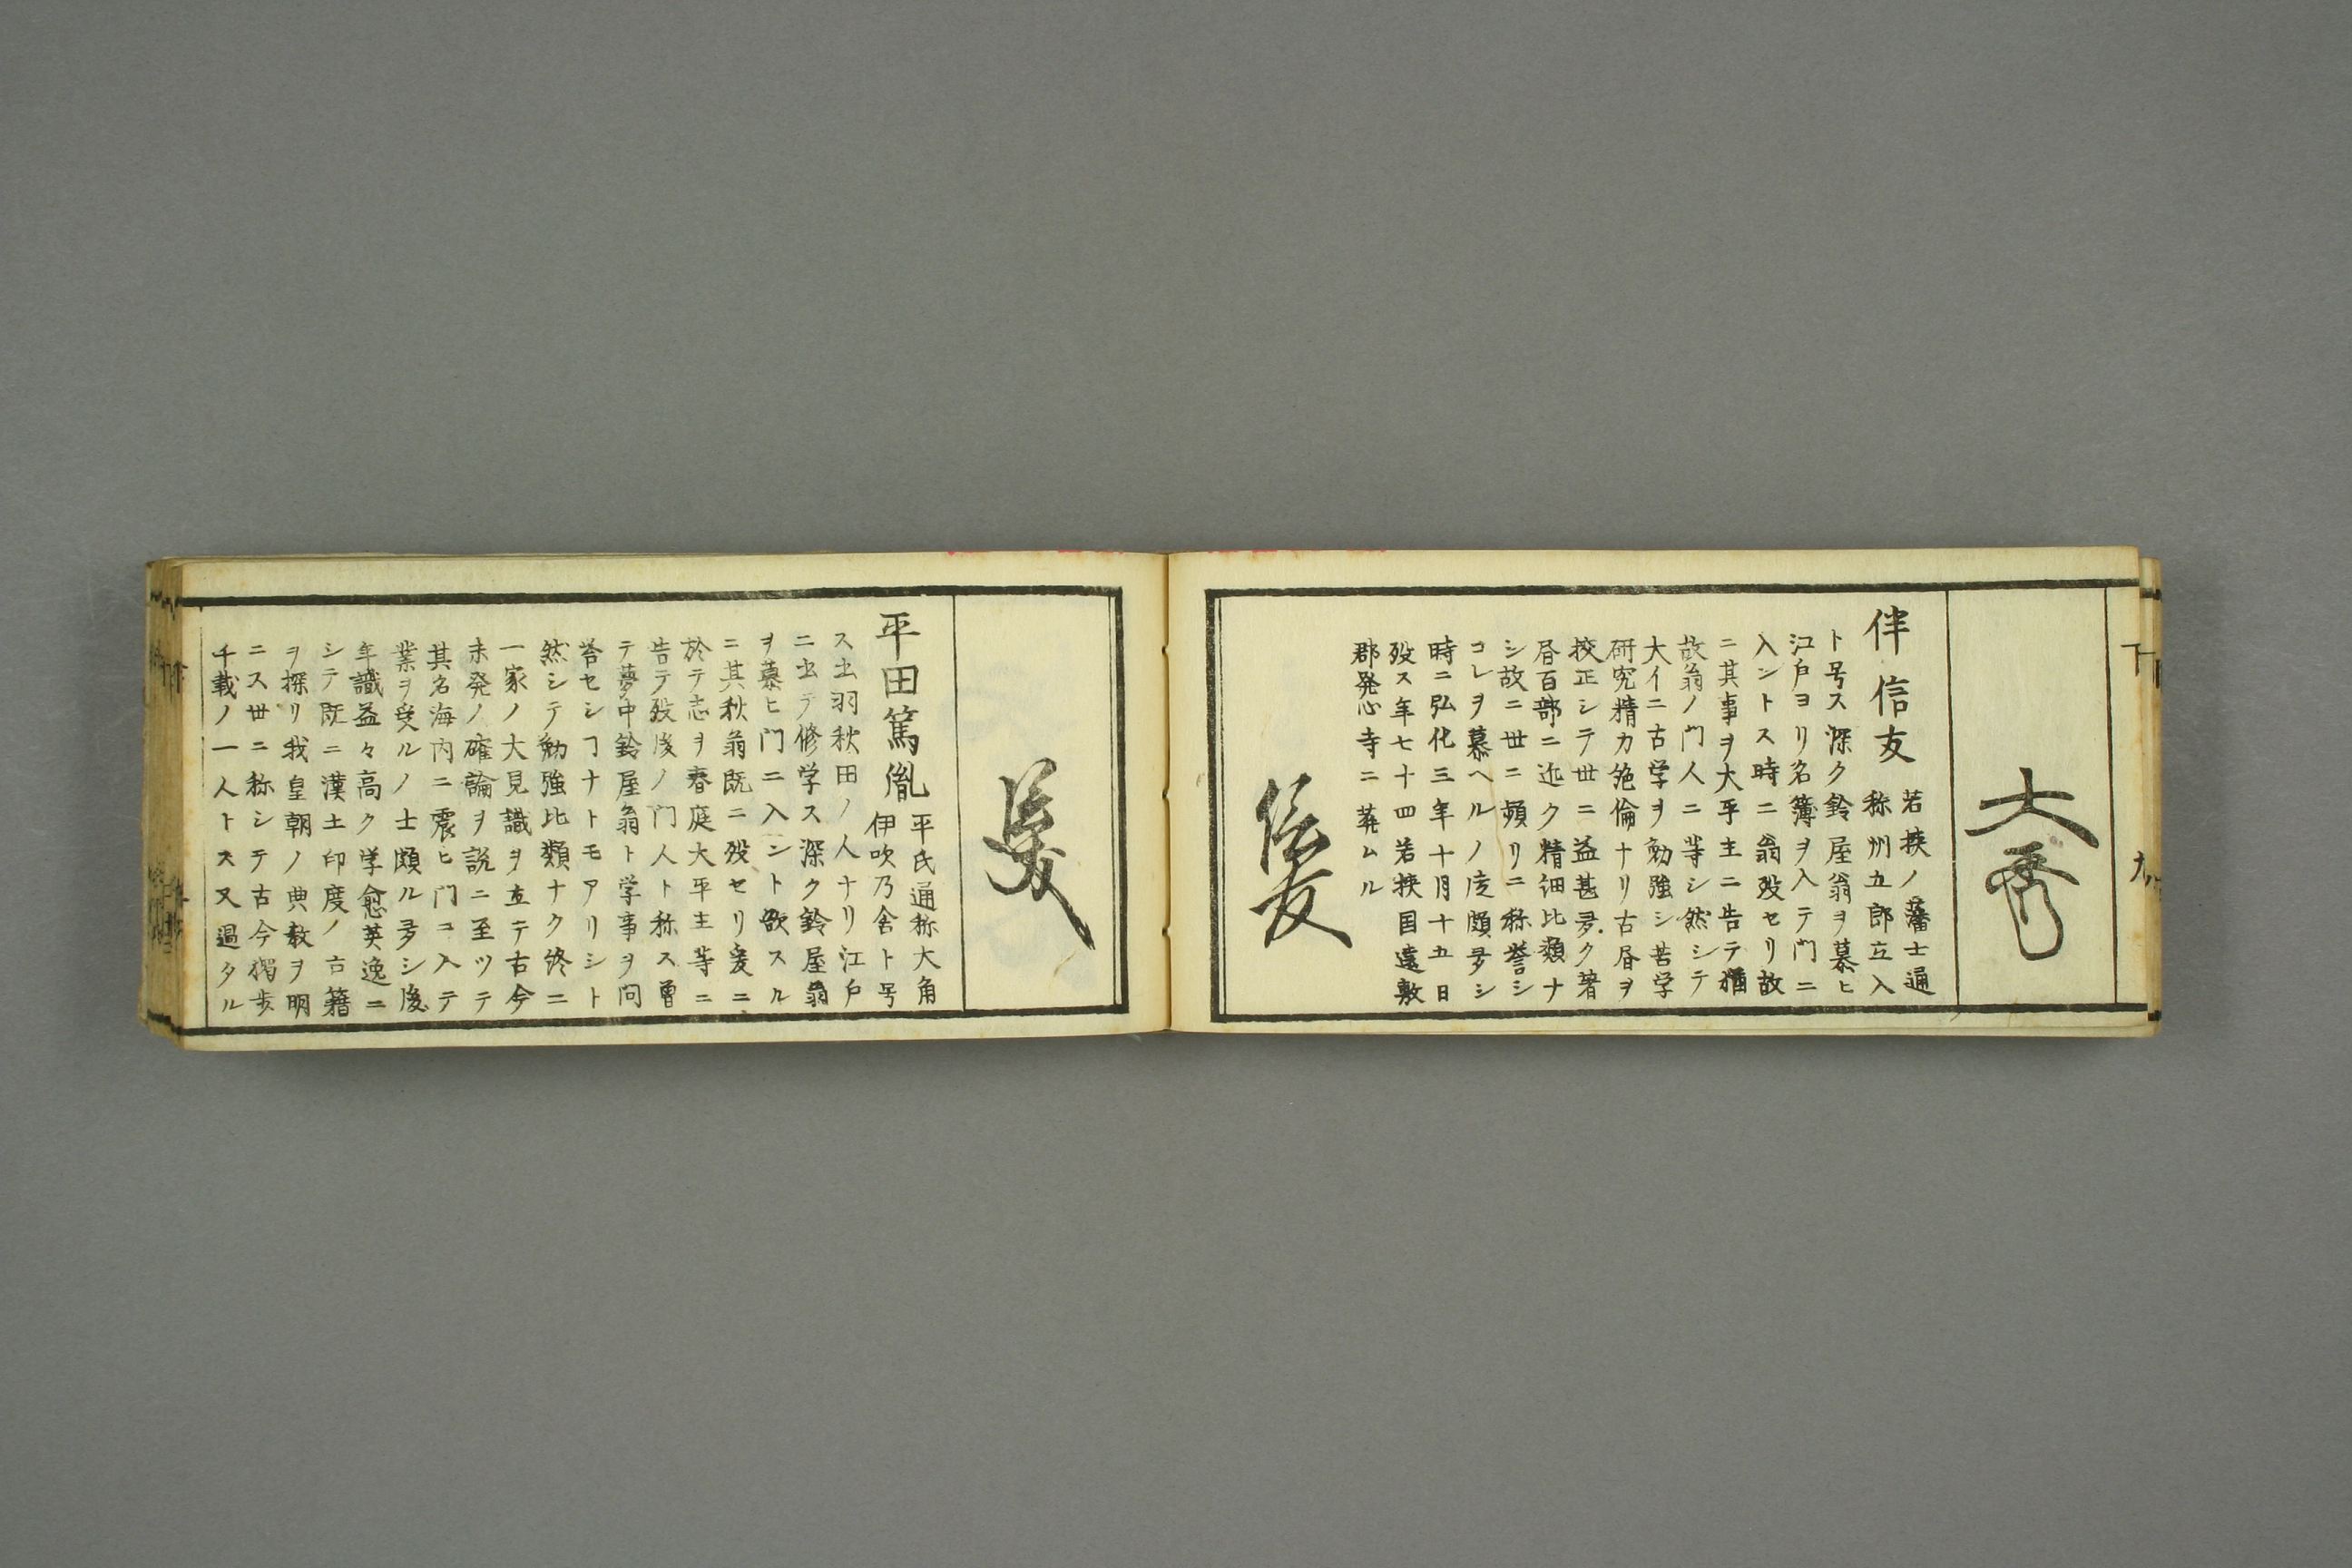 大秀
伴信友
若挟ノ藩士通
称州五郎立入
ト号ス深ク鈴屋翁ヲ慕ヒ
江戶ヨリ名簿ヲ入テ门ニ
入ントス時ニ翁歿セリ故
ニ其事ヲ大平主ニ告テ猶
故翁ノ门人ニ等シ然シテ
大イニ古学ヲ勉強シ苦学
研究精力絶倫ナリ古昏ヲ
挍正シテ世ニ益甚多ク著
昏百部ニ近ク精細比類ナ
シ故ニ世ニ頻リニ称誉シ
コレヲ慕ヘルノ庋頗多シ
時ニ弘化三年十月十五日
歿ス年七十四若挟国遠敷
郡発心寺ニ葬ムル
信友
平田篤胤
平氏通称大角
伊吹乃舎ト号
ス出羽秋田ノ人ナリ江戶
ニ出テ修学ス深ク鈴屋翁
ヲ慕ヒ门ニ入ント欲スル
ニ其秋翁既ニ歿セリ爰ニ
於テ志ヲ春庭大平主等ニ
告テ歿後ノ门人ト称ス曽
テ夢中鈴屋翁ト学事ヲ問
答セシヿナトモアリシト
然シテ勉強比類ナク終ニ
一家ノ大見識ヲ立テ古今
未発ノ確論ヲ説ニ至ツテ
其名海内ニ震ヒ门ニ入テ
業ヲ受ルノ士頗ル多シ後
年識益々高ク学愈英逸ニ
シテ既ニ漢土印度ノ古籍
ヲ探リ我皇朝ノ典教ヲ明
ニス世ニ称シテ古今獨歩
千載ノ一人トス又過タル